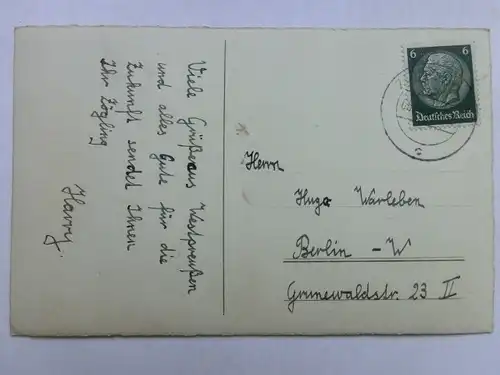 Viele Grüße aus Westpreußen
und alles Gute für die
Zukunft sendet Ihnen
Ihr Zögling
Harry.
6 6
Deutsches Reich
Herrn
Hugo Warleben
Berlin - W
Grunewaldstr. 23 II